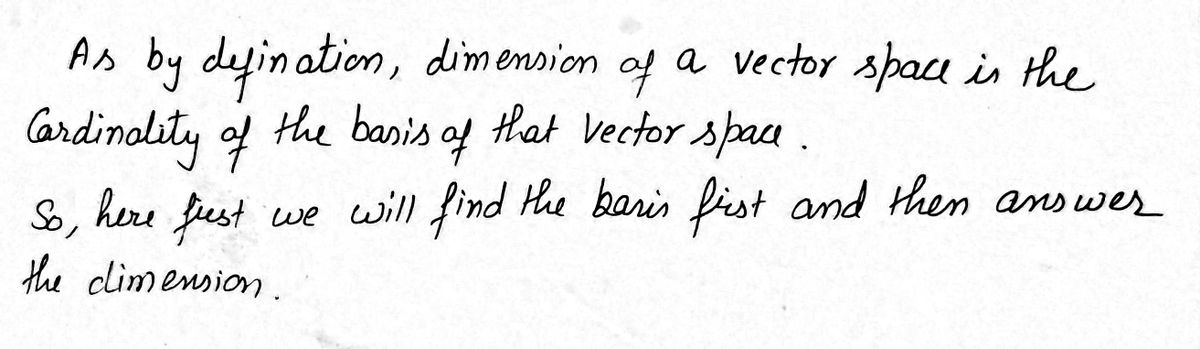 As by defination, dimension of a vector space is the
Cardinality of the basis of that Vector space.
So, here first we will find the basis first and then answer
the dimension.